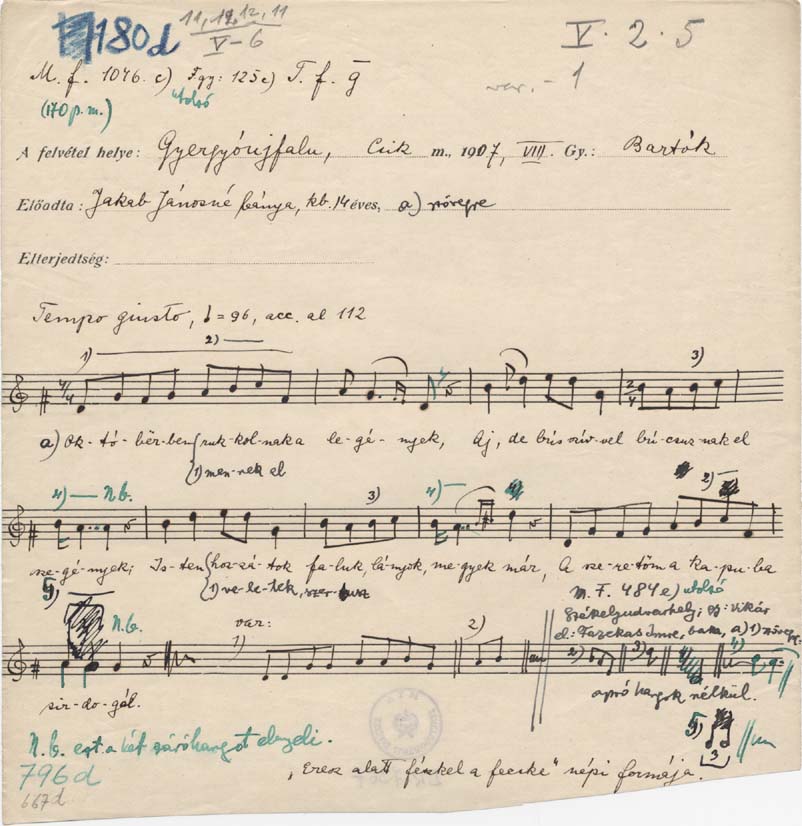 180d 11, 12, 12, 11
V-6
V. 2. 5
var. - 1
M. f. 1046. c) Fgy: 125c) T. f. g
(170 p. m.) utolsó
A felvétel helye: Gyergyóujfalu, Csik m., 1907, VIII. Gy.: Bartók
Előadta: Jakab Jánosné leánya, kb. 14 éves, a) szövegre
Elterjedtség:
Tempo giusto, = 96, acc. al 112
1) 2) 3)
a) Ok-tó-bër-ben ruk-kol-nak a le-gé-nyek, Aj, de bús szív-vel bú-csuz-nak el
1) men-nek el
4) N.b. 3) 4) 2)
sze-gé-nyek; Is-ten hoz-zá-tok fa-luk, lá-nyok, me-gyek már, A sze-re-tőm a ka-pu-ba
1) ve-le-tek,
5) N.b.
M. F. 484e) utolsó
Székelyudvarhely; Gy: Vikár
el: Fazekas Imre, baka, a) 1) szövegre
var: 1) 2) 2) 3) 4)
sir-do-gál.
apró hangok nélkül.
5) 3
N.b. ezt a két záróhangot
796d
667d
"Eresz alatt fészkel a fecske" népi formája.